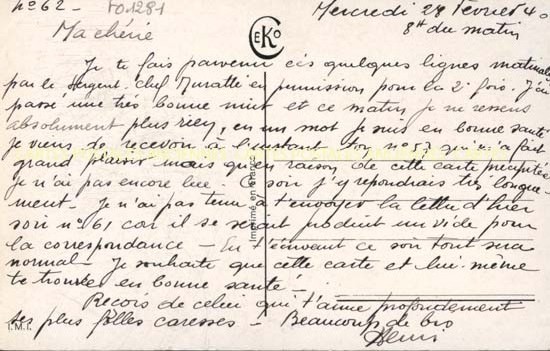 n° 62 - F01281 Mercredi 28 Février 40
8H du matin
Ma chérie
CEKO
Je te fais parvenir ces quelques lignes matinales
par le Sergent Chef Muratte en permission pour la 2e fois. J'ai
passé une très bonne nuit et ce matin je ne ressens
absolument plus rien, en un mot je suis en bonne santé
je viens de recevoir à l'instant ton n° 57 qui m'a fait
grand plaisir mais qu'en raison de cette carte précipitée
je n'ai pas encore lue. Ce soir j'y répondrais très longue-
ment - Je n'ai pas tenu à t'envoyer la lettre d'hier
soir n° 61 car il se serait produit un vide pour
la correspondance - En t'envoyant ce soir tout sera
normal - Je souhaite que cette carte et lui même
te trouver en bonne santé -
Recois de celui qui t'aime profondément
ses plus folles caresses - Beaucoup de bis
Denis
Imprimé en France
I.M.I.